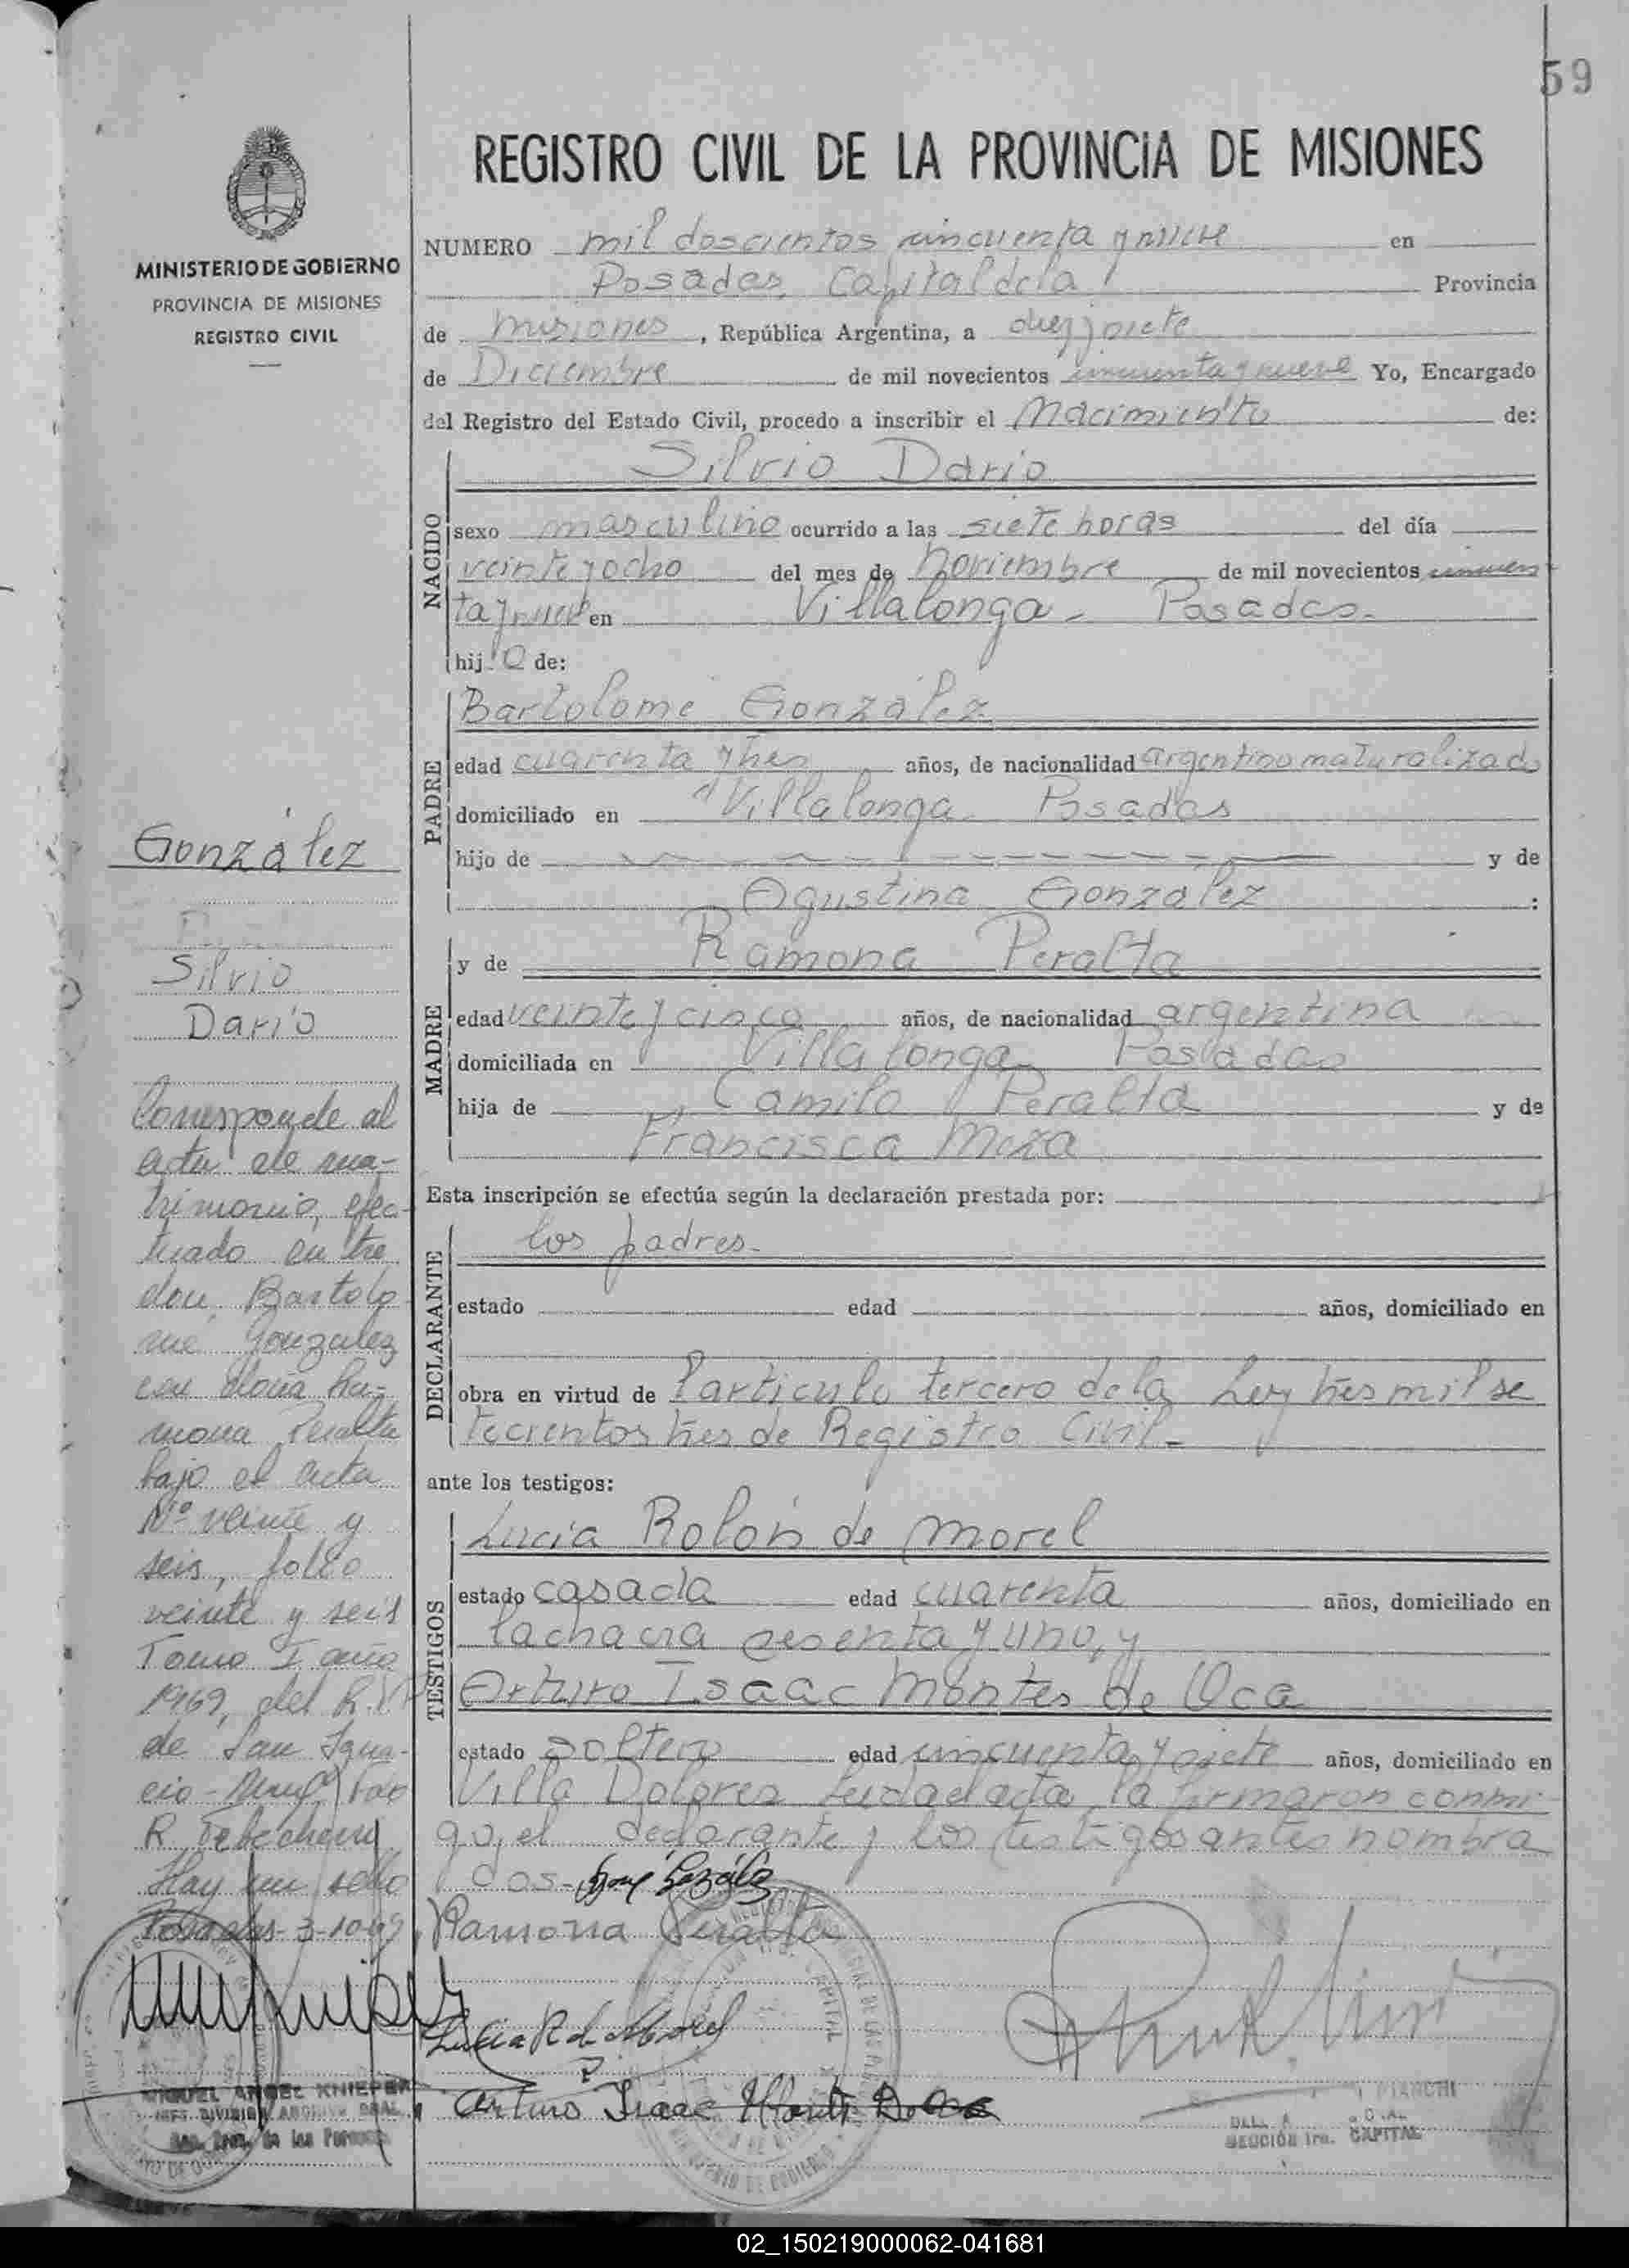 59
REGISTRO CIVIL DE LA PROVINCIA DE MISIONES
MINISTERIO DE GOBIERNO
PROVINCIA DE MISIONES
REGISTRO CIVIL
NUMERO mil doscientos cincuenta y nueve en
Posadas, Capital de la Provincia
de Misiones, República Argentina, a diez y siete
de Diciembre de mil novecientos cincuenta y nueve Yo, Encargado
del Registro del Estado Civil, procedo a inscribir el Nacimiento de:
Silvio Dario
NACIDO
sexo masculino ocurrido a las siete horas del día
veinte y ocho del mes de Noviembre de mil novecientos cincuen
ta y nueve en Villalonga - Posadas.
hijo de:
PADRE
Bartolomé González
edad cuarenta y tres años, de nacionalidad argentino naturalizado
domiciliado en Villalonga Posadas
hijo de y de
Agustina González :
MADRE
y de Ramona Peralta
edad veinte y cinco años, de nacionalidad argentina
domiciliada en Villalonga Posadas
hija de Camilo Peralta y de
Francisca Meza
Esta inscripción se efectúa según la declaración prestada por:
DECLARANTE
los padres.
estado edad años, domiciliado en
obra en virtud de l'articulo tercero de la Ley tres mil se
tecientos tres de Registro Civil.
ante los testigos:
TESTIGOS
Lucía Rolón de Morel
estado casada edad cuarenta años, domiciliado en
la chacra sesenta y uno, y
Arturo Isaac Montes de Oca
estado soltero edad cincuenta y siete años, domiciliado en
Villa Dolores leida el acta, la firmaron conmi
go, el declarante y los testigos antes nombra
dos-
Ramona Peralta
Lucia R de Morel
Arturo Isaac Montes de Oca
González
Silvio
Darío
Corresponde al
acta de ma-
trimonio, efec-
tuado entre
don Bartolo
mé Gonzalez
con doña Ra-
mona Peralta
bajo el acta
Nº veinte y
seis, folio
veinte y seis
Tomo I año
1969, del R.
de San Igna-
cio -
R
Hay un sello
Posadas - 3-10-69
MIGUEL ANGEL KNIEPER
JEFE DIVISION ARCHIVO GRAL.
Reg. Prov. de las Personas
BIANCHI
SECCIÓN 1ra. CAPITAL
02_150219000062-041681